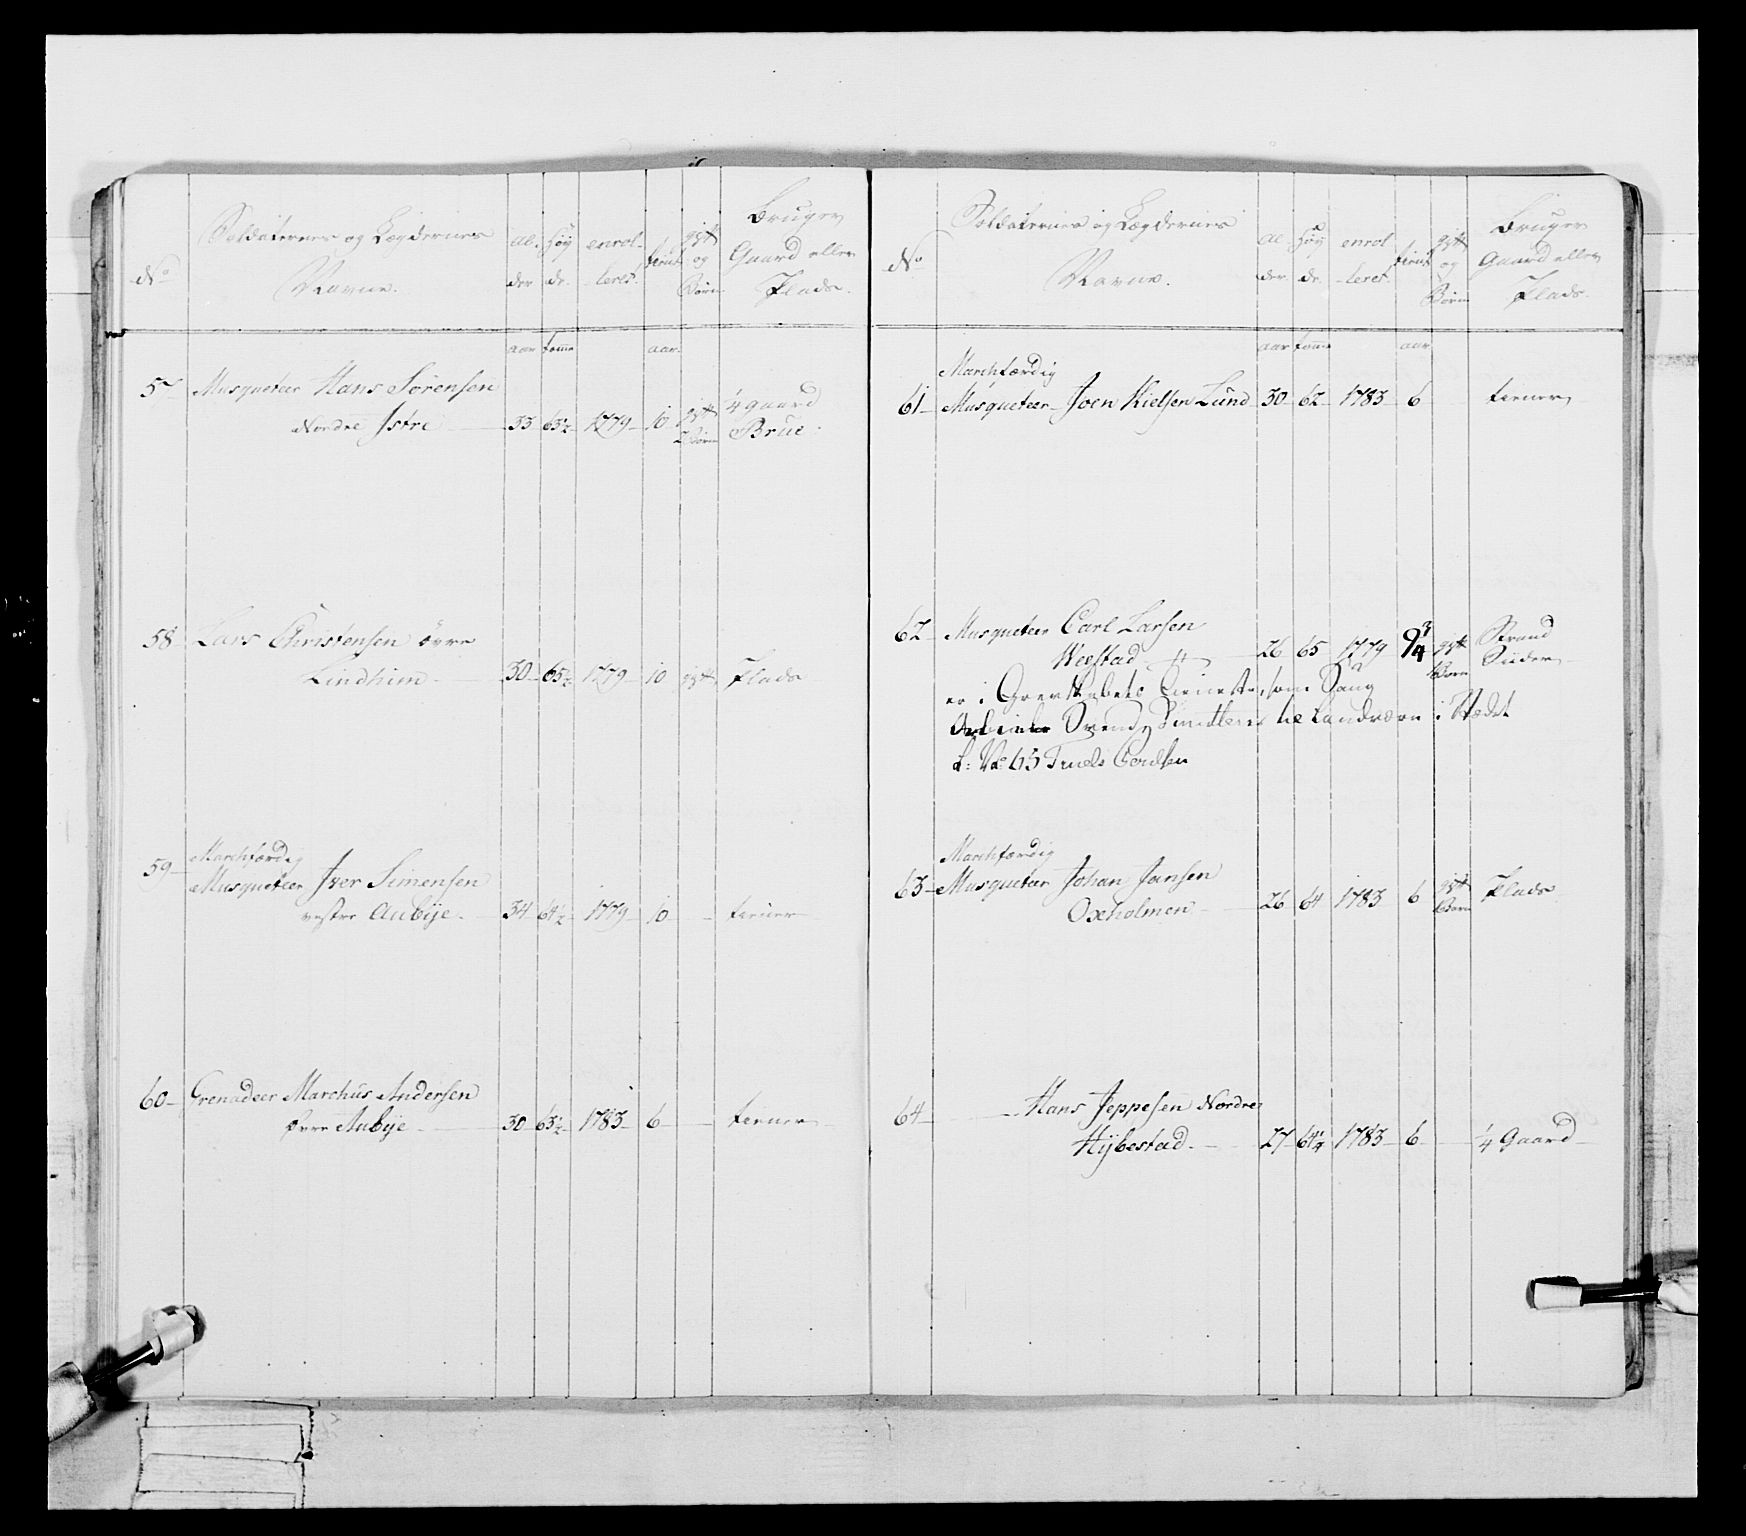 No
Soldaternes og Lægdernes
Navne.
al-
der
Høy
de.
enrol-
leret.
tient
gift
og
Børn
Bruger
Gaard eller
Plads.
aar tomme aar
57 Musqueteer Hans Sørensen
Nordre Istre 33 63½ 1779 10 gift 2 Børn ¼ gaard
Brue
58 Lars Christensen øvre
Lindhim 30 65½ 1779 10 gift Plads
59 Marchfærdig
Musqueteer Iver Simensen
vestre Aubye 34 64½ 1779 10 tiener
60 Grenadeer Marchus Andersen
øvre Aubye 30 63½ 1783 6 tiener
No
Soldaternes og Lægdernes
Navne.
al-
der
Høy
de.
enrol
leret.
tient
gift
og
Børn
Bruger
Gaard eller
Plads.
aar tomme aar
Marchfærdig
61 Musqueteer Joen Kielsen Lund 30 62 1783 6 tiener
62 Musqueteer Carl Larsen
Weestad 26 65 1779 9¾ gift Børn Strand
Siider
er i Grevskabets Tieneste, som Saug
Svend, til Landværn i Stædet
No 65 Truels
Marchfærdig
63 Musqueteer Johan Jansen
Oxeholmen 26 64 1783 6 gift Børn Plads
64 Hans Jeppesen Nordre
Hybestad 27 64¼ 1783 6 ¼ Gaard